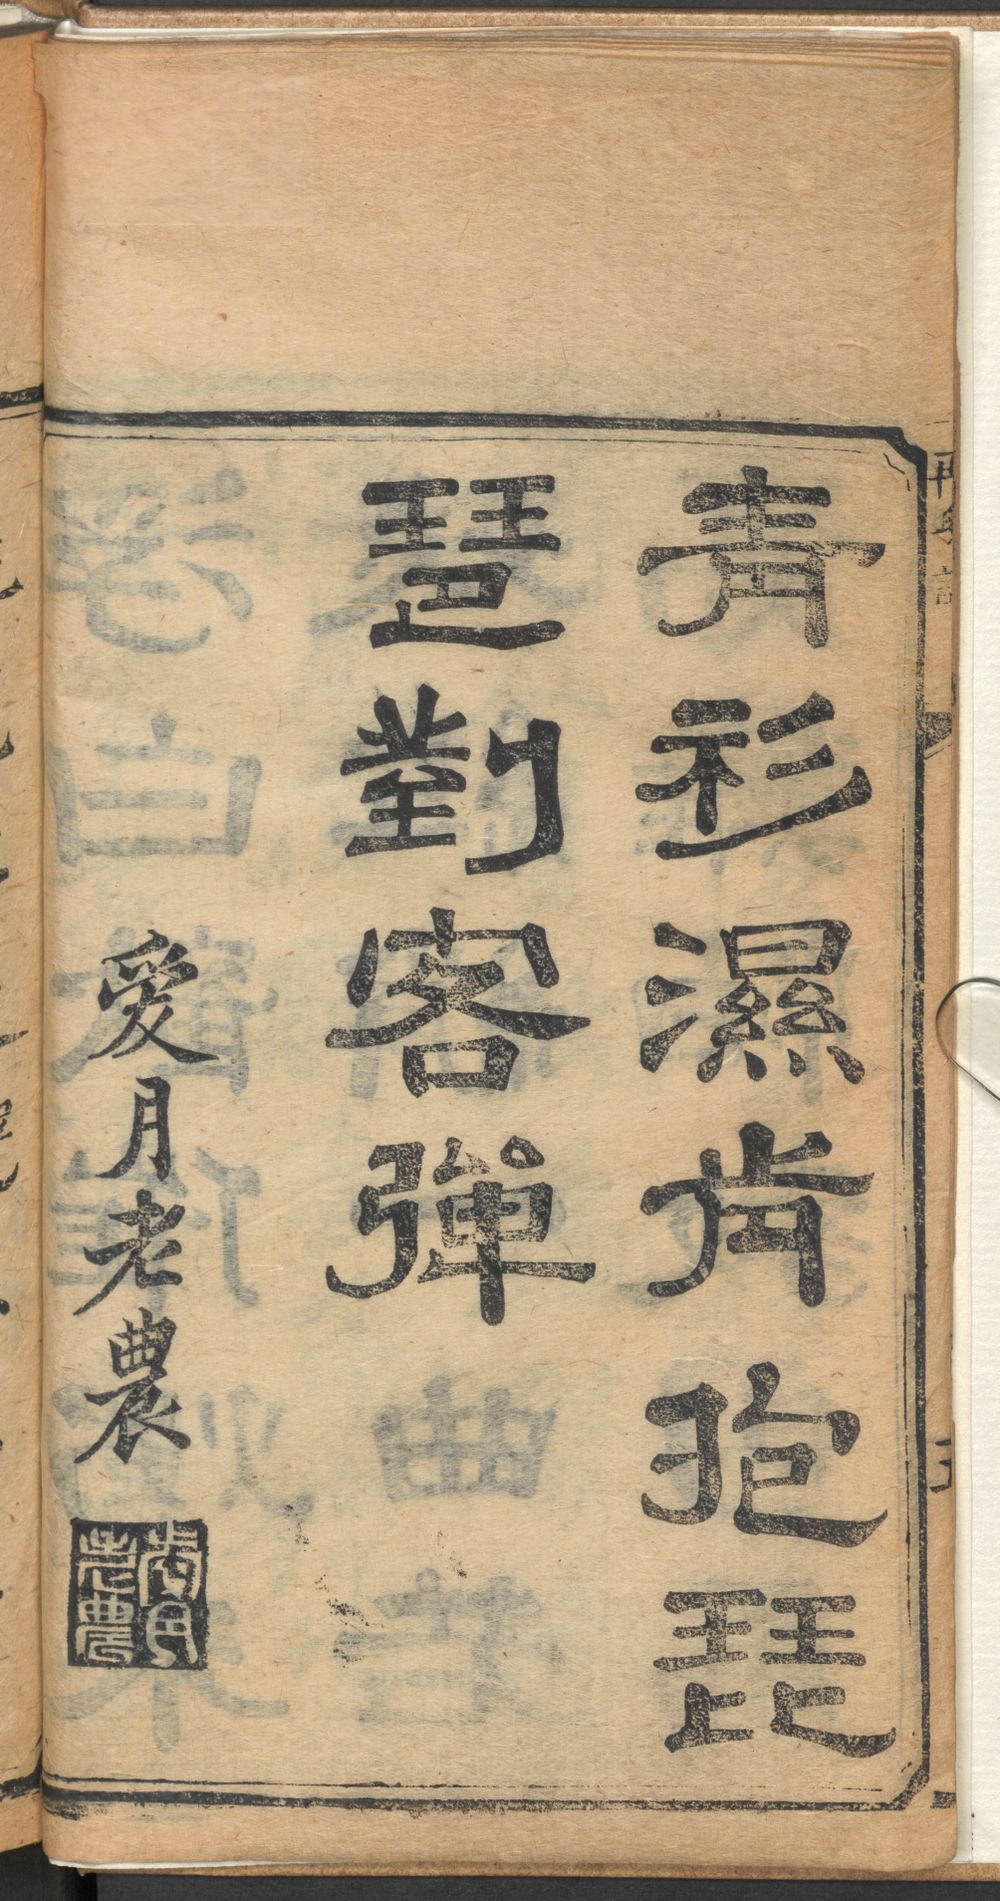 青衫濕肯抱琵
琶對客彈
愛月老農